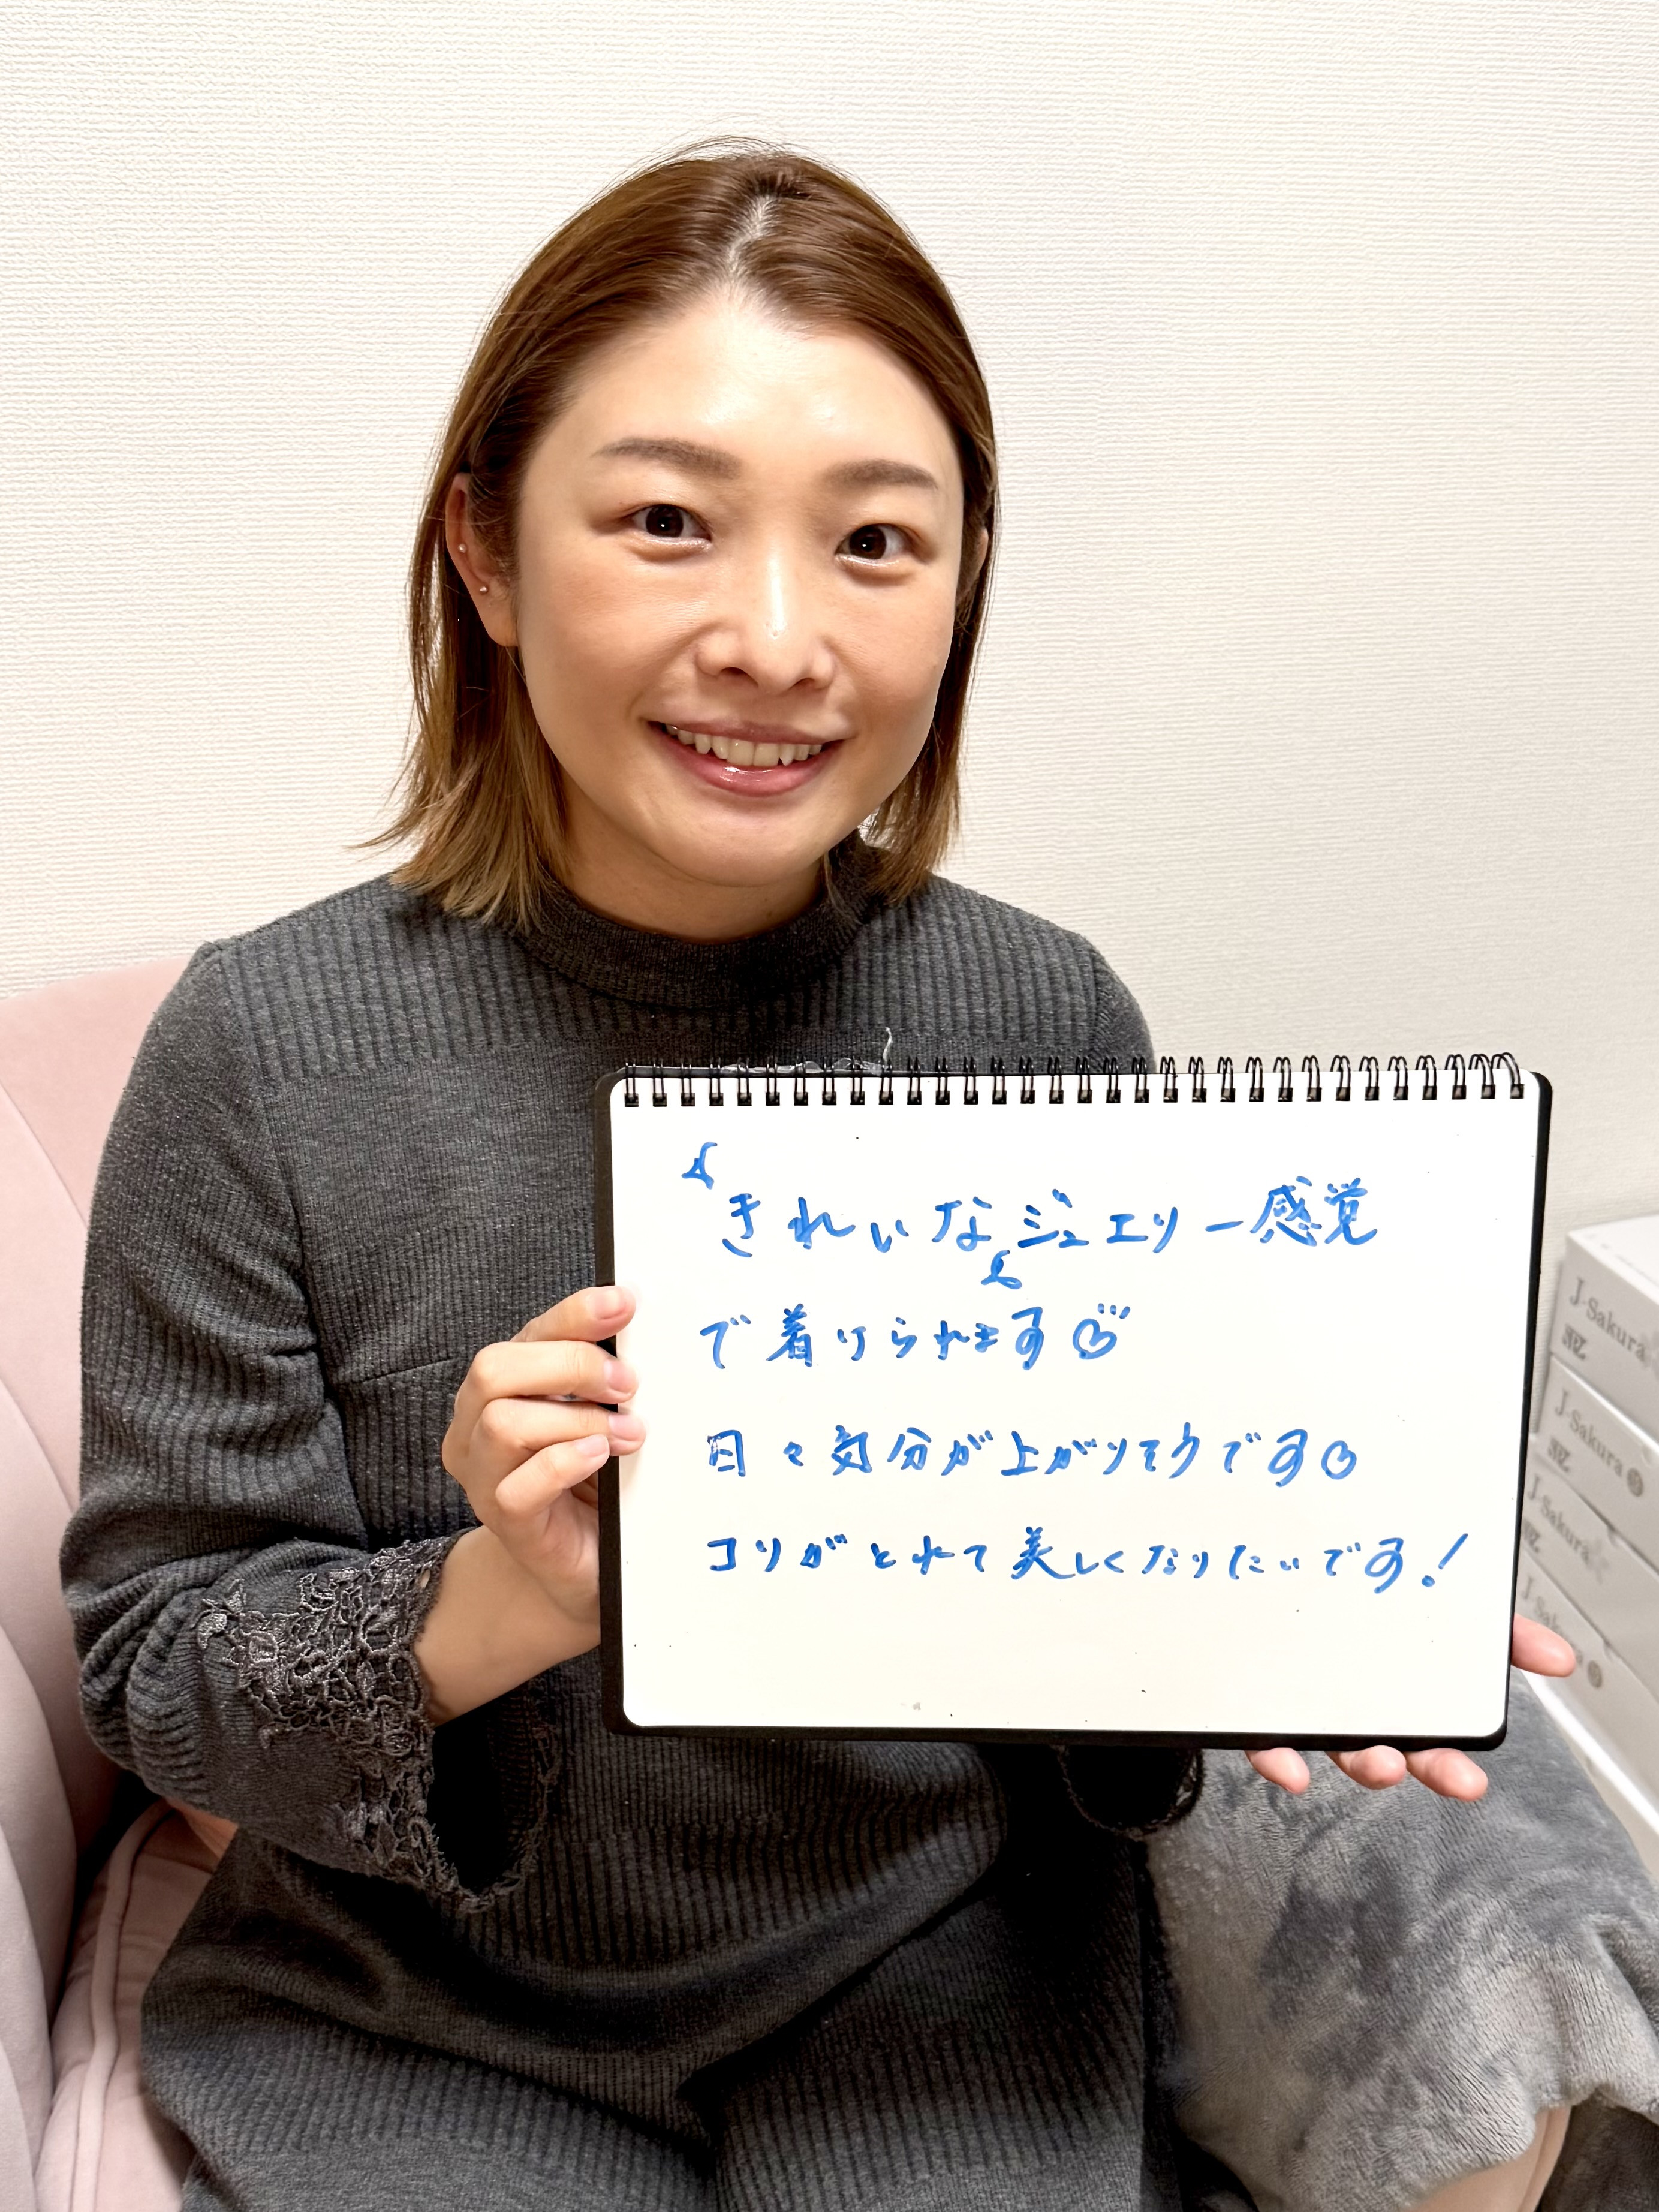 きれいなジュエリー感覚
で着けられます♡
日々気分が上がりそうです♡
コリがとれて美しくなりたいです！
J-Sakura
J-Sakura
J-Sakura